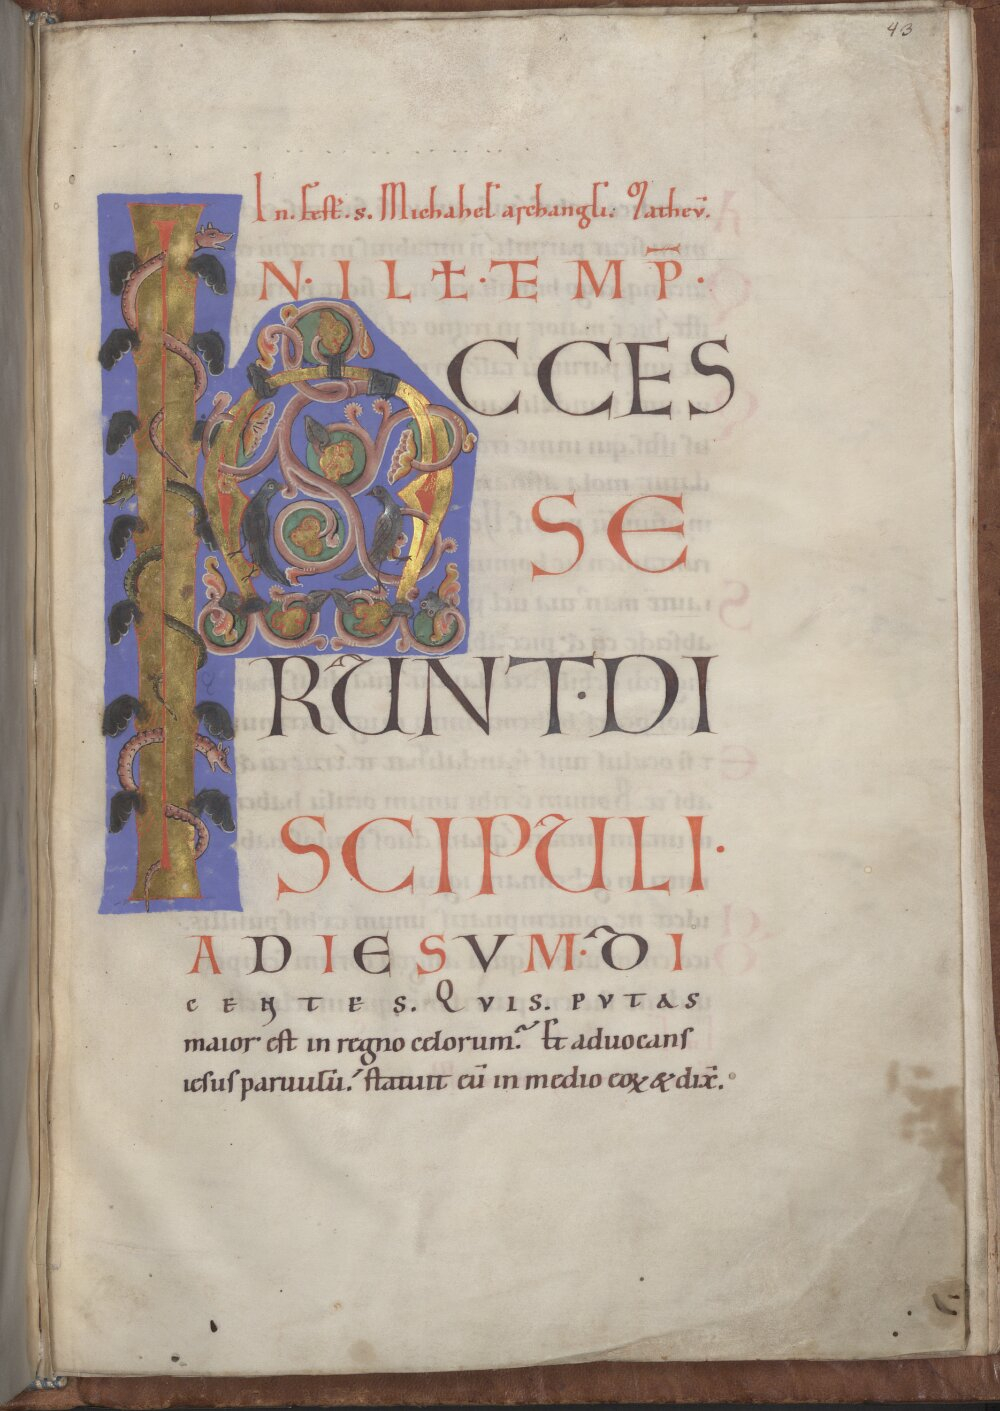 43
In. fest. s. Michahel archangli. Matheū.
IN. ILŁ. TEMP̄.
ACCES
SE
RUNT. DI
SCIPULI.
AD IESUM. DI
CENTES. QVIS. PVTAS
maior est in regno celorum. Et aduocans
iesus paruulū. statuit eū in medio eoꝝ & dix̄.